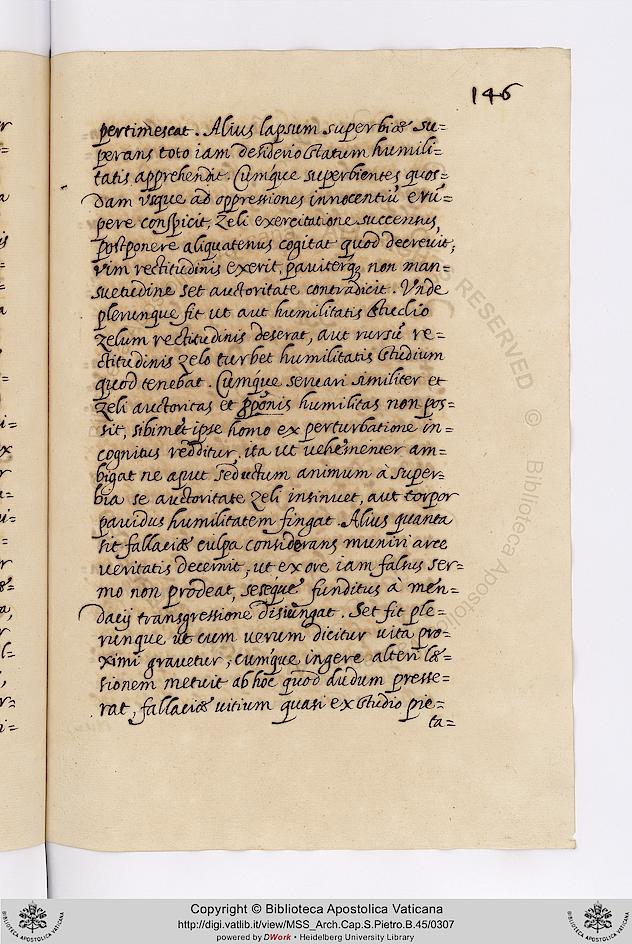 146
pertimescat. Alius lapsum superbiæ su=
perans toto iam desiderio statum humili=
tatis apprehendit. Cumque superbientes quos=
dam usque ad oppressiones innocentiũ erũ=
pere conspicit, zeli exercitatione succensus,
postponere aliquatenus cogitat quod decreuit,
vim rectitudinis exerit, pauiterq; non man=
suetudine set auctoritate contradicit. Vnde
plerunque fit ut aut humilitatis studio
zelum rectitudinis deserat, aut rursũ re=
ctitudinis zelo turbet humilitatis studium
quod tenebat. Cumque seruari similiter et
zeli auctoritas et humilitas non pos=
sit, sibimet ipse homo ex perturbatione in=
cognitus redditur, ita ut uehementer am=
bigat ne aput seductum animum à super=
bia se auctoritate zeli insinuet, aut torpor
pauidus humilitatem fingat. Alius quanta
sit fallaciæ culpa considerans muniri arce
ueritatis decernit, ut ex ore iam falsus ser=
mo non prodeat, seseque funditus à men=
dacij transgressione disiungat. Set fit ple=
runque ut cum uerum dicitur uita pro=
ximi grauetur, cumque ingere alteri læ=
sionem metuit ab hoc quod dudum presse=
rat, fallaciæ uitium quasi ex studio pie=
ta=
RESERVED © Biblioteca Apostolica
Copyright © Biblioteca Apostolica Vaticana
http://digi.vatlib.it/view/MSS_Arch.Cap.S.Pietro.B.45/0307
powered by DWork • Heidelberg University Library